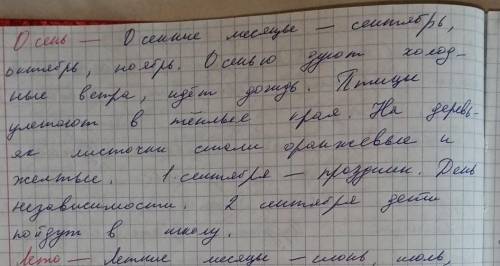 Осень — Осенние месяцы — сентябрь,
октябрь, ноябрь. Осенью дуют холод-
ные ветра, идёт дождь. Птицы
улетают в тёплые края. На деревь-
ях листочки стали оранжевые и
желтые. 1 сентября — праздник. День
независимости. 2 сентября дети
пойдут в школу.
Лето — Летние месяцы — июнь, июль,